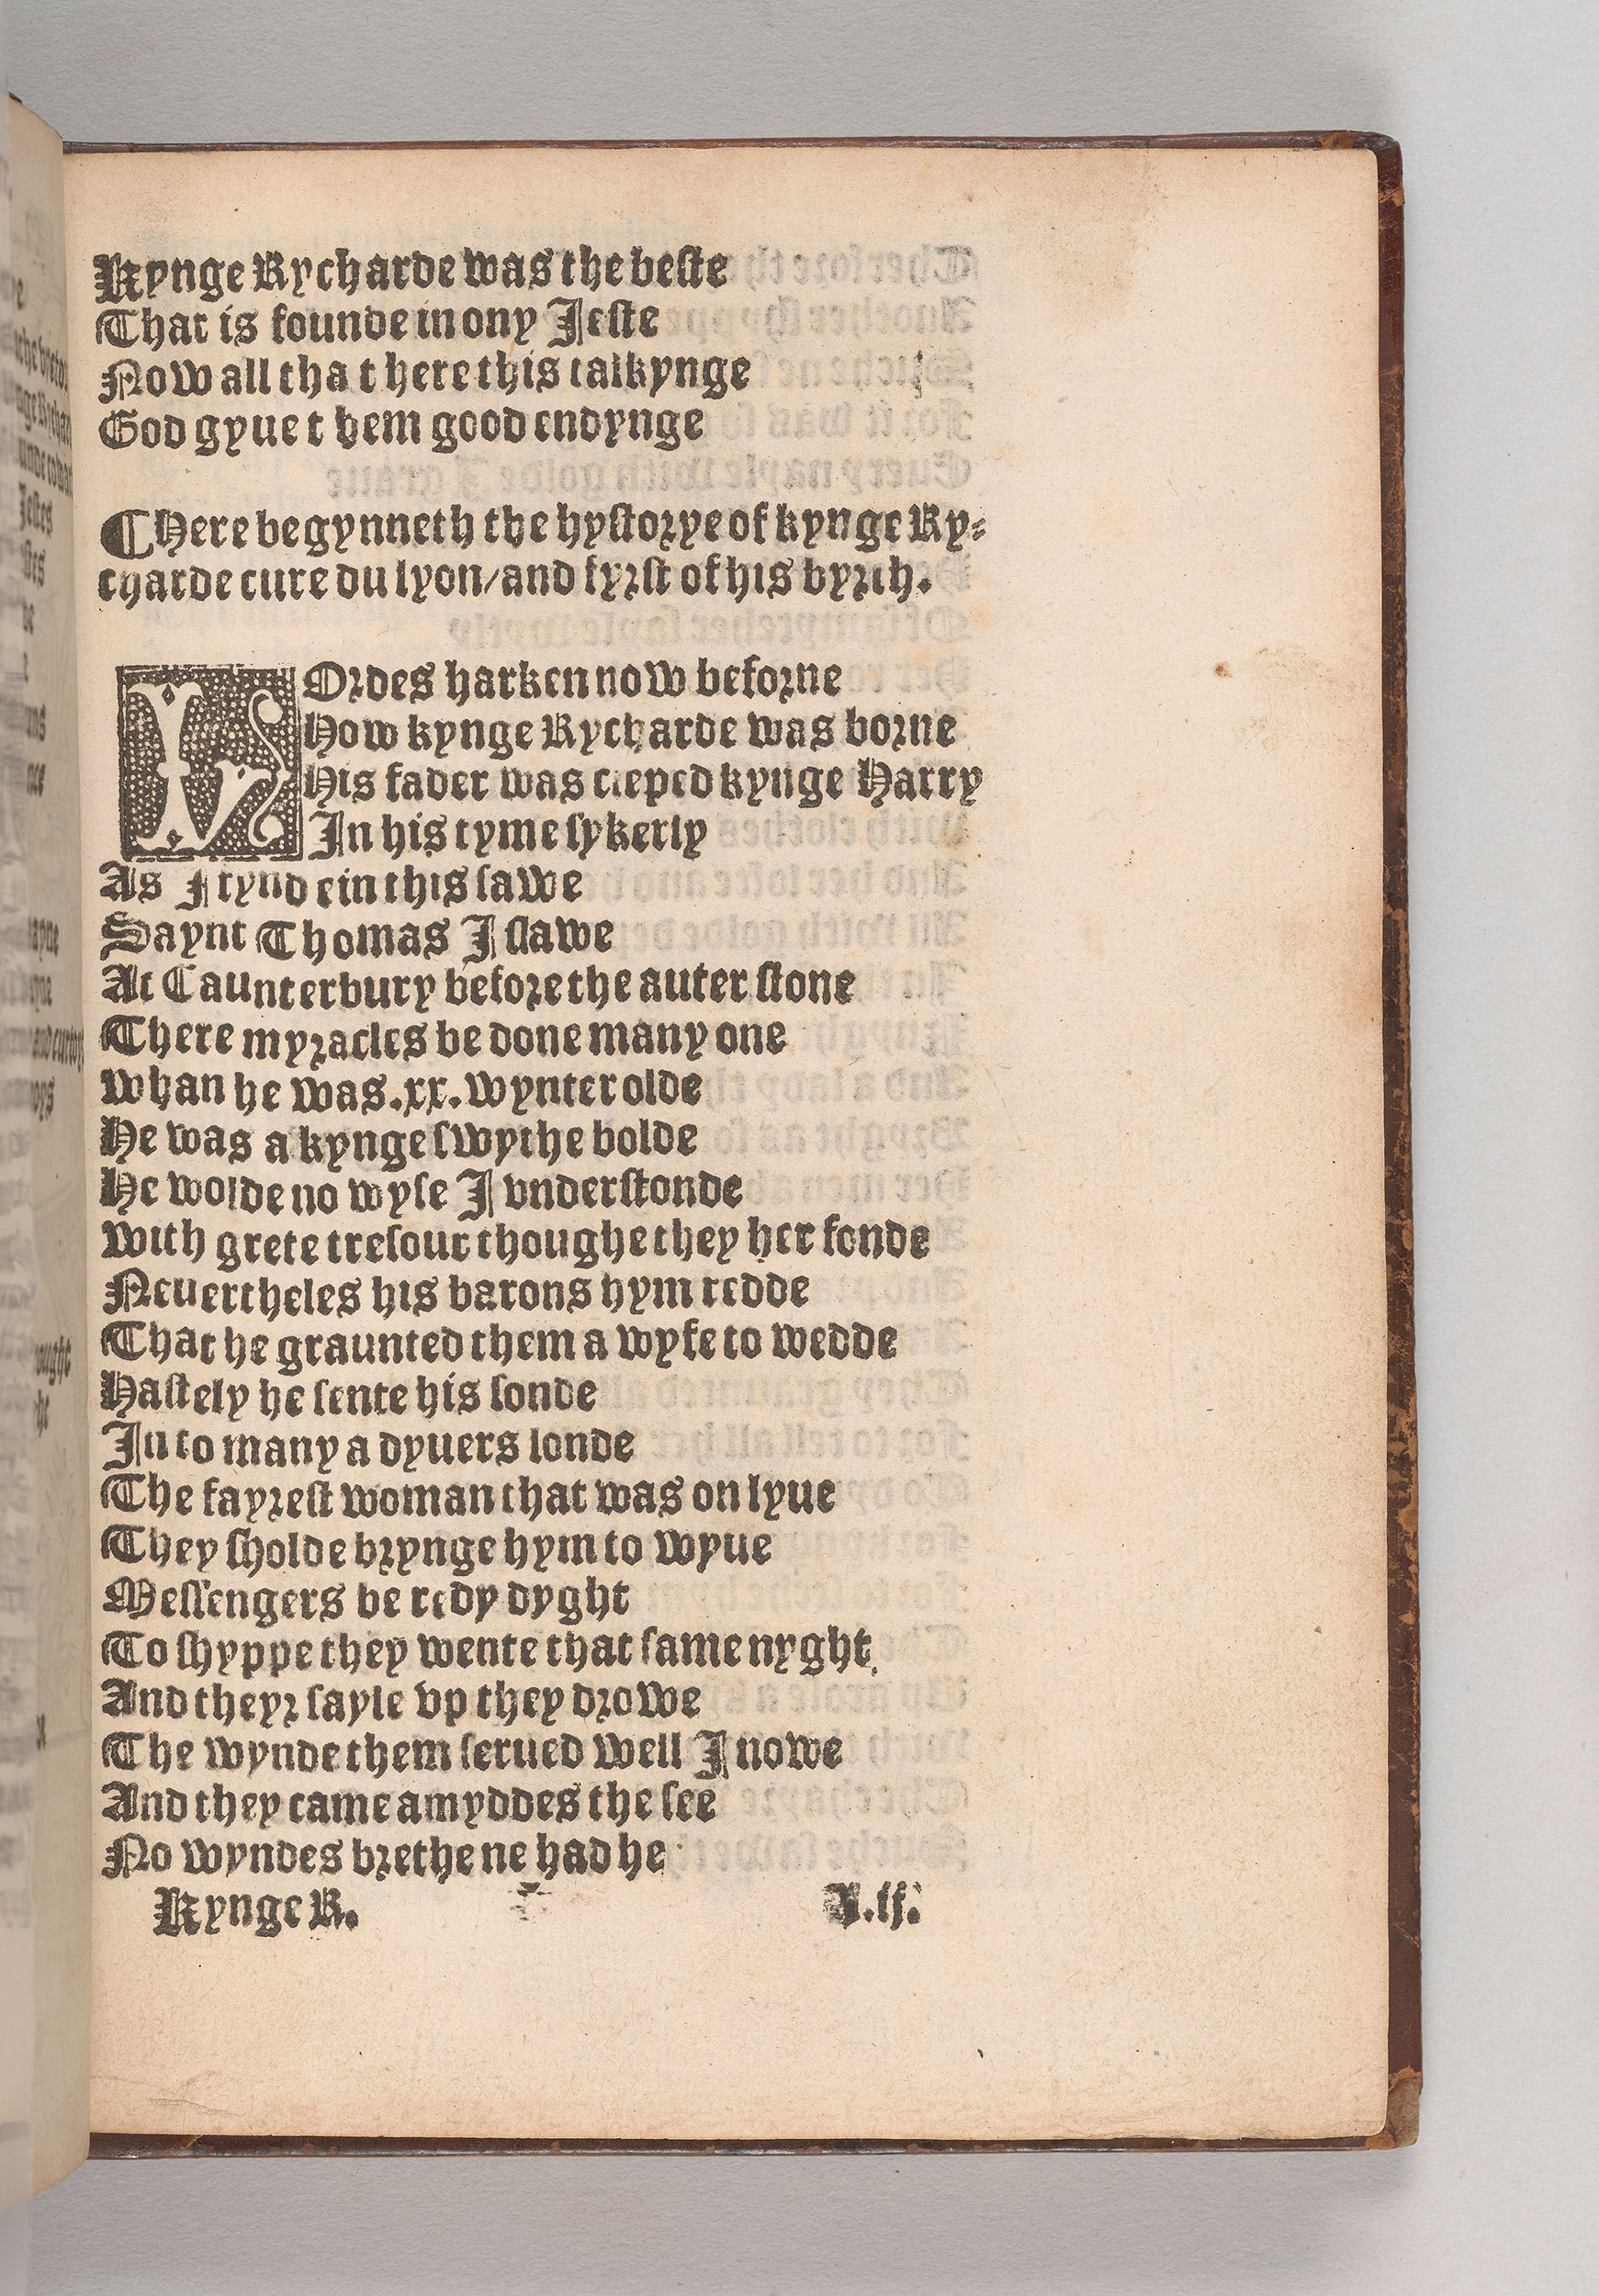 Kynge Rycharde was the beste
That is founde in ony Jeste
Now all that here this talkynge
God gyue them good endynge
¶ Here begynneth the hystorye of kynge Ry=
charde cure du lyon/and fyrst of his byrth.
LOrdes harken now beforne
How kynge Rycharde was borne
His fader was cleped kynge Harry
In his tyme sykerly
As I fynde in this sawe
Saynt Thomas I slawe
At Caunterbury before the auter stone
There myracles be done many one
Whan he was .xx. wynter olde
He was a kynge swythe bolde
He wolde no wyse I vnderstonde
With grete tresour thoughe they her fonde
Neuertheles his barons hym redde
That he graunted them a wyfe to wedde
Hastely he sente his sonde
In to many a dyuers londe
The fayrest woman that was on lyue
They sholde brynge hym to wyue
Messengers be redy dyght
To shyppe they wente that same nyght
And theyr sayle vp they drowe
The wynde them serued well I nowe
And they came amyddes the see
No wyndes brethe ne had he
Kynge R. A.ij.